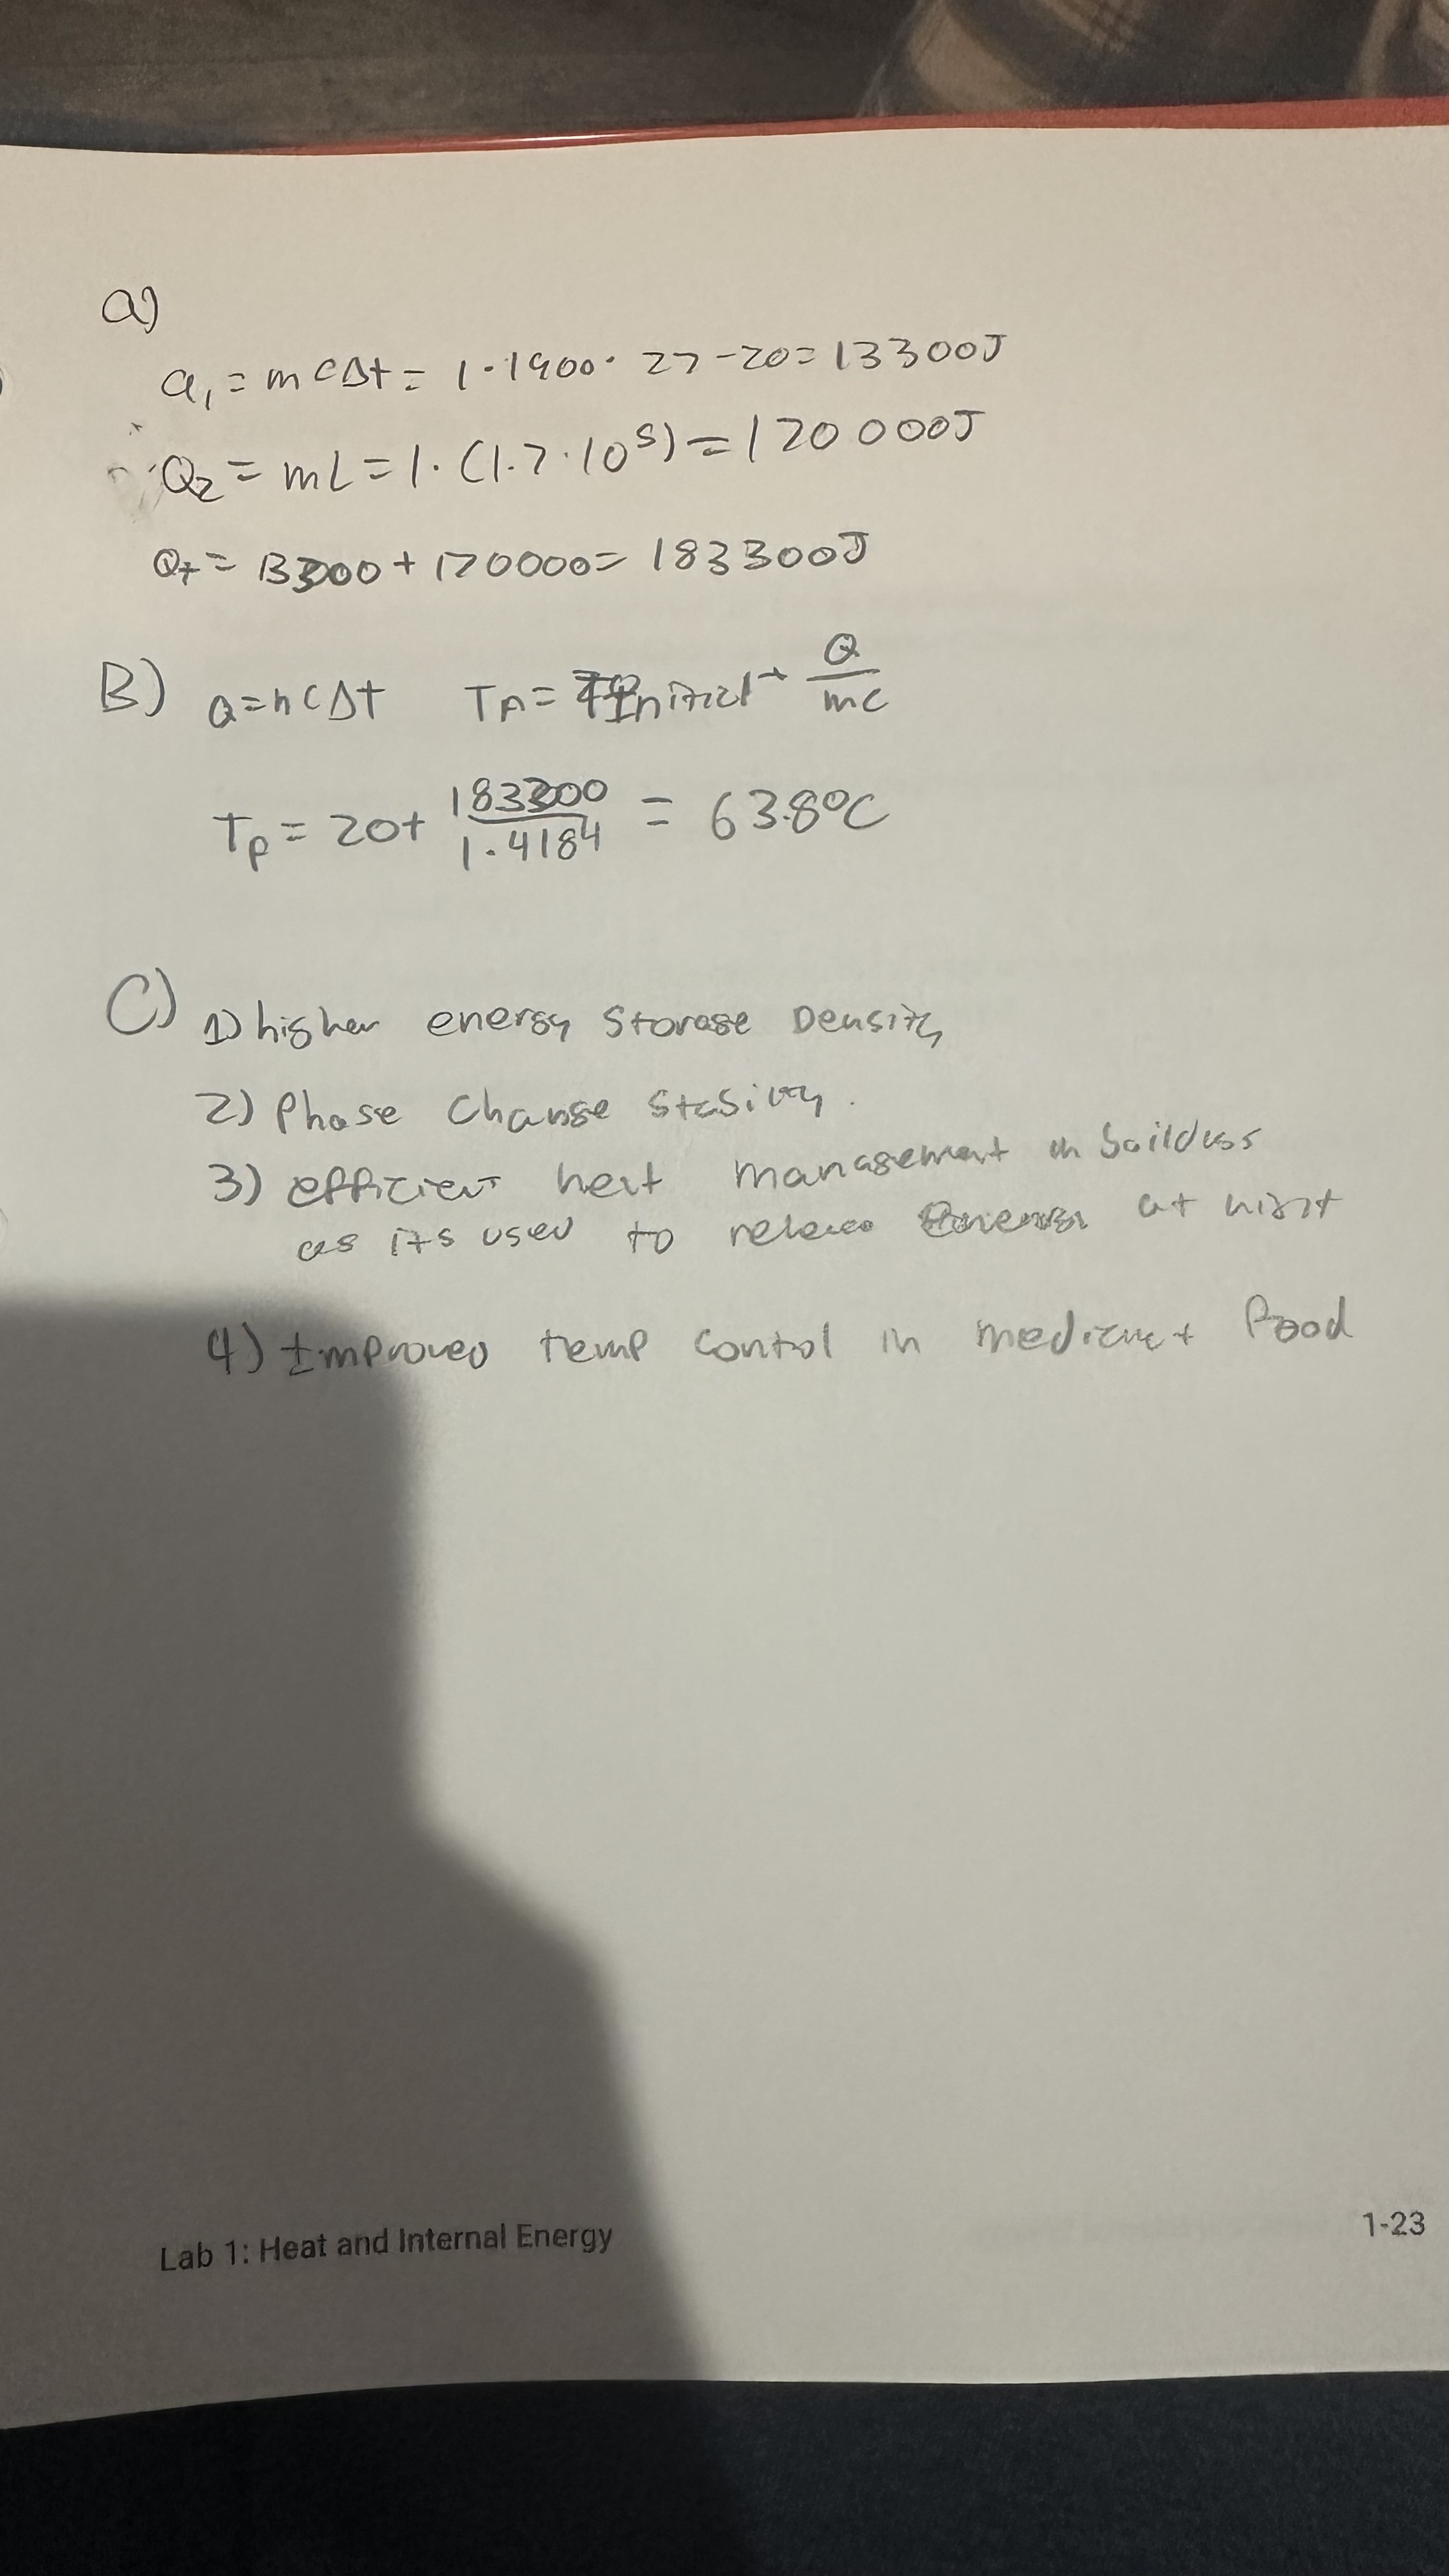 a)
Q₁ = mcΔt = 1·1900· 27-20= 13300J
Q₂ = mL = 1·(1.7·10⁵) = 170 000J
Qt = 13300 + 170000 = 183300J
B) Q=mcΔt TF = TInitial + Q/mc
TF = 20+ 183300/1·4184 = 63.8°C
C) 1) higher energy Storage Density
2) Phase Change Stability.
3) efficient heat management in buildings
as its used to release energy at night
4) Improved temp control in medicine + Food
Lab 1: Heat and Internal Energy
1-23